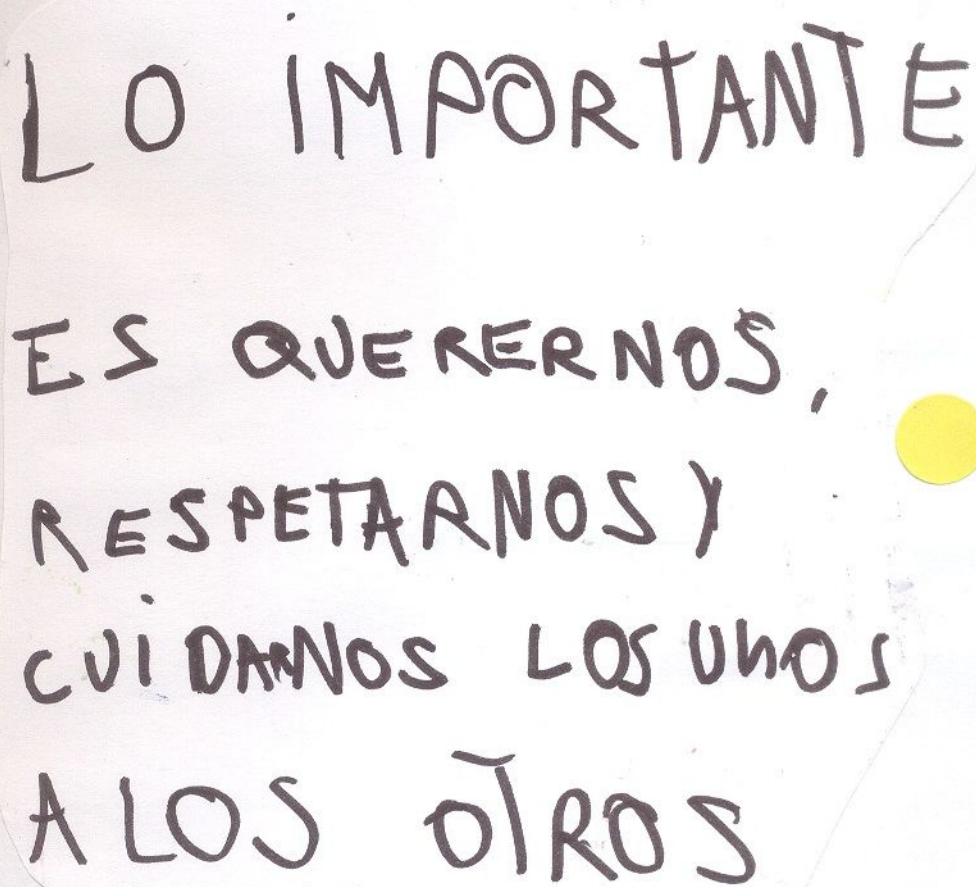 LO IMPORTANTE
ES QUERERNOS,
RESPETARNOS Y
CUIDARNOS LOS UNOS
A LOS OTROS